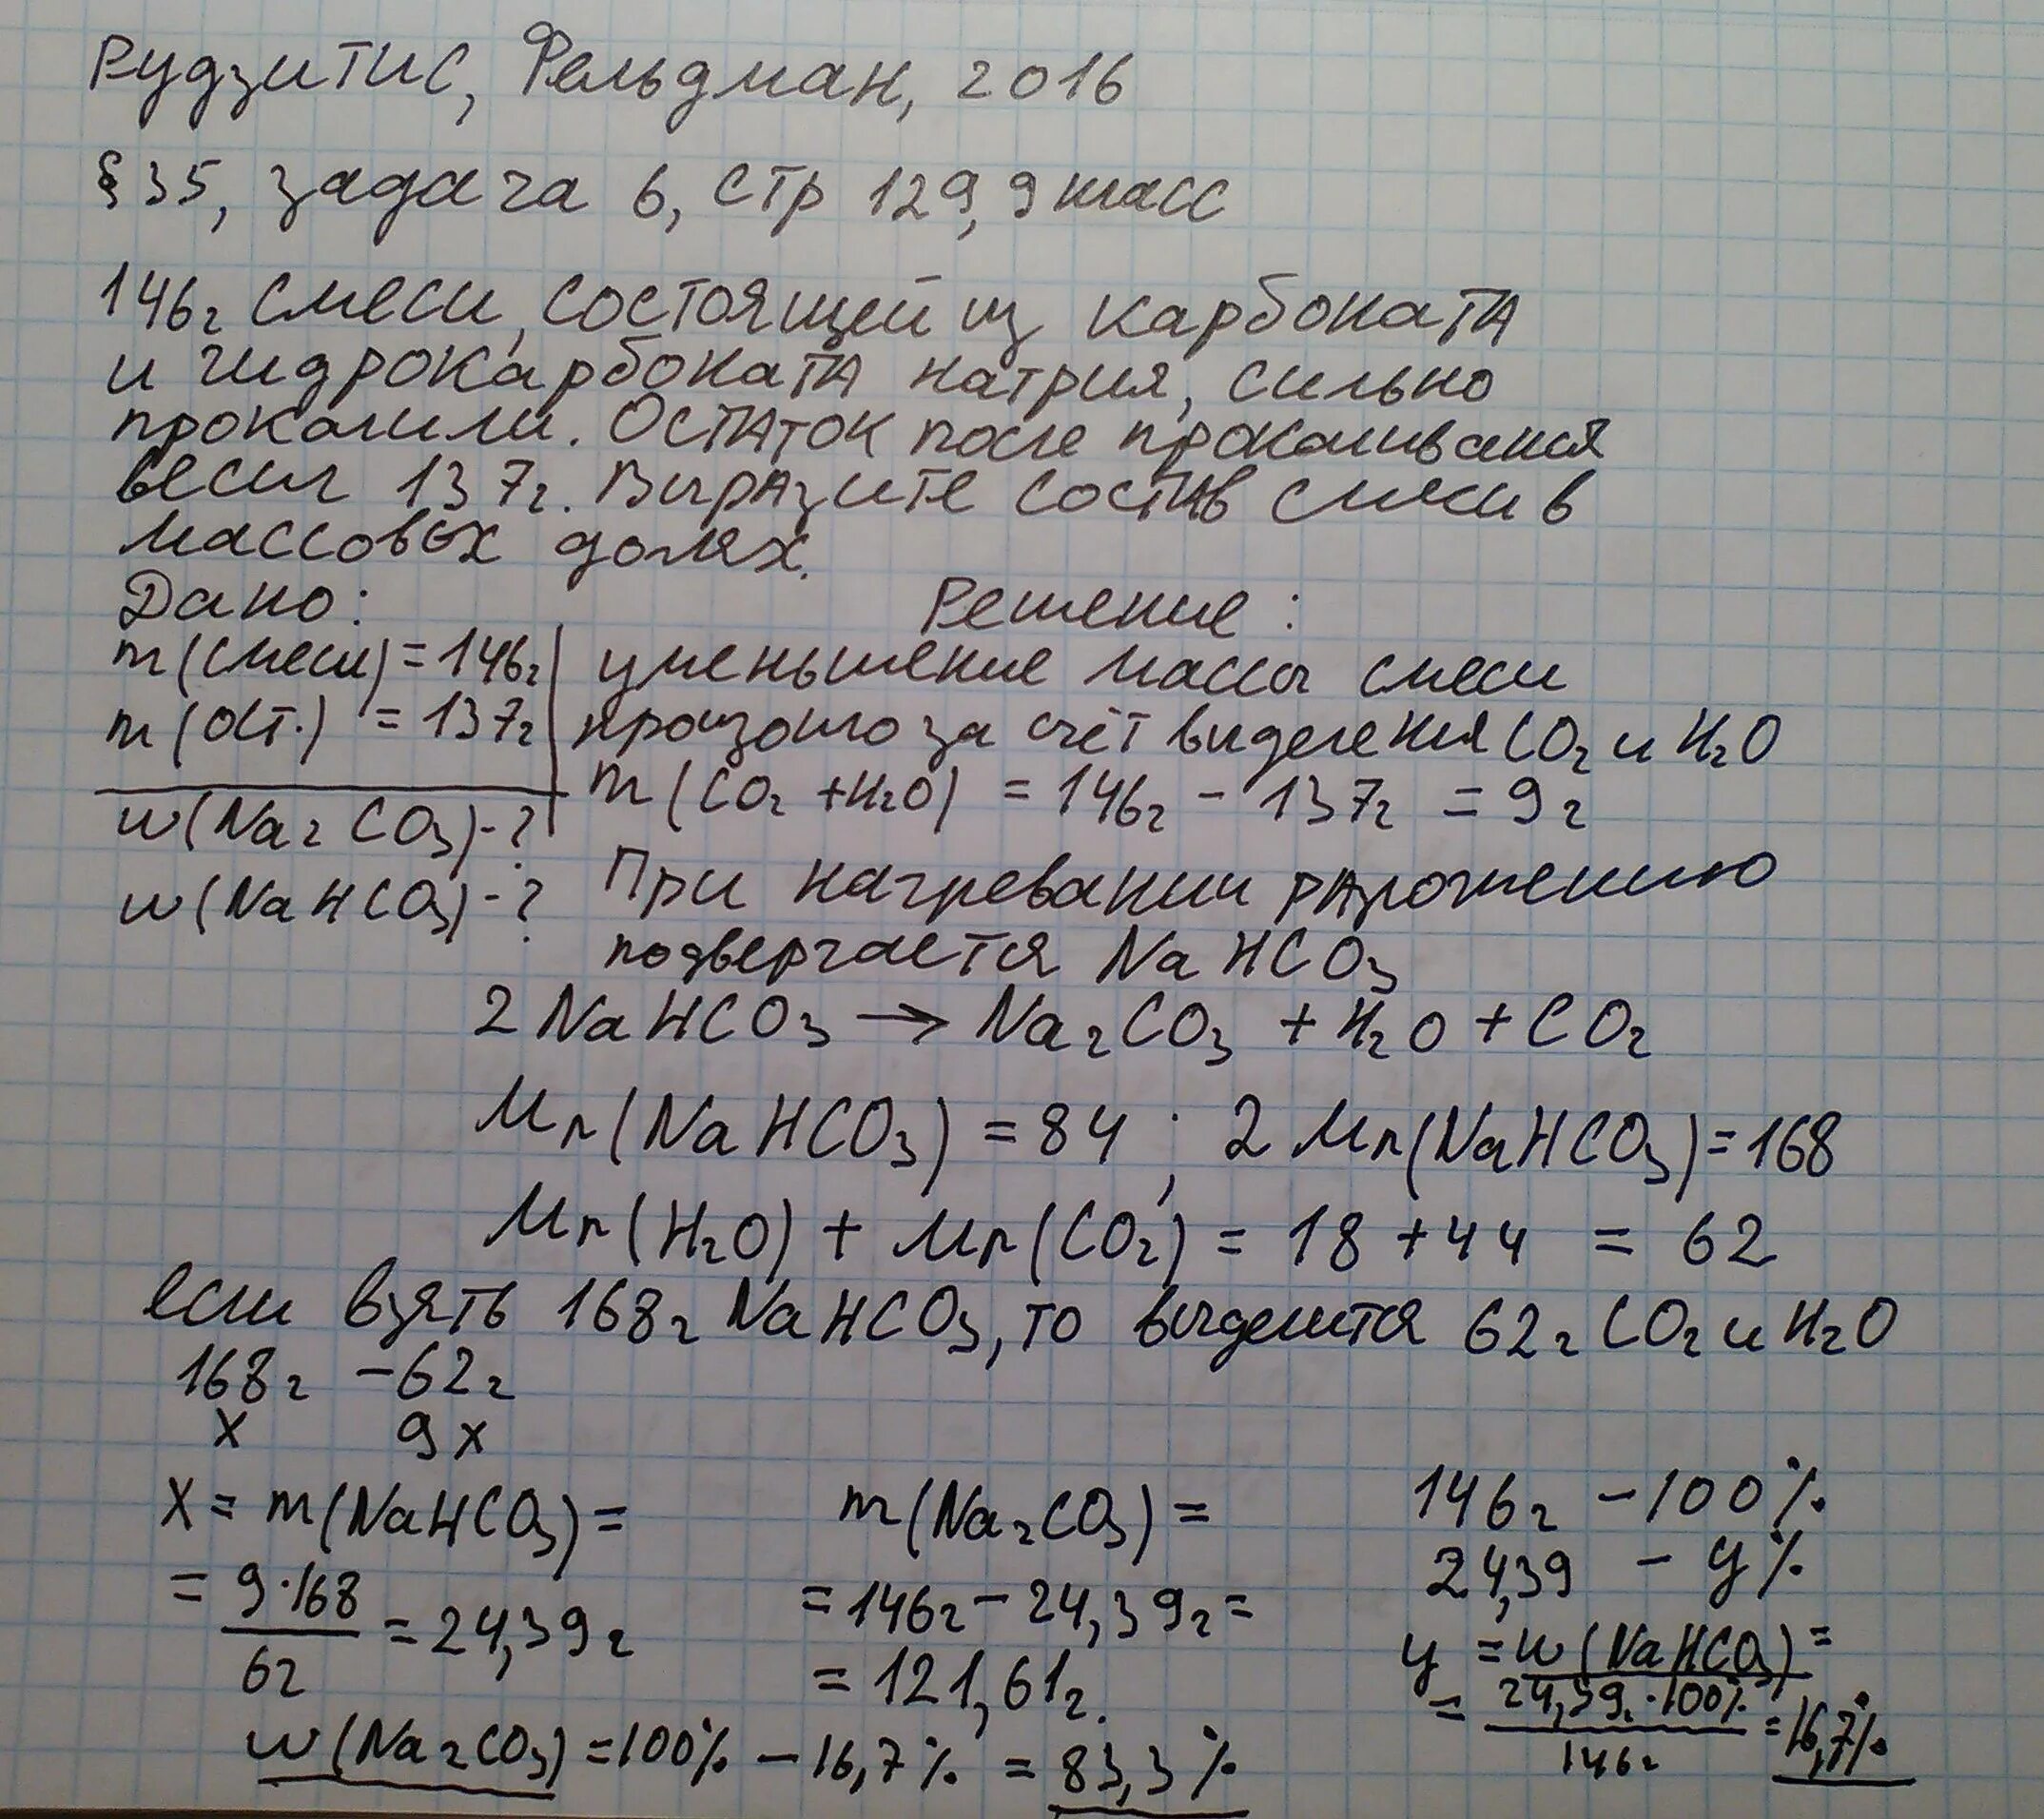 Рудзитис, Фельдман, 2016
§ 35, задача 6, стр 129, 9 класс
146г смеси, состоящей из карбоната
и гидрокарбоната натрия, сильно
прокалили. Остаток после прокаливания
весил 137г. Выразите состав смеси в
массовых долях.
Дано:
m(смеси) = 146г
m(ост.) = 137г
w(Na2CO3)-?
w(NaHCO3)-?
Решение:
уменьшение массы смеси
произошло за счёт выделения CO2 и H2O
m(CO2 + H2O) = 146г - 137г = 9г
При нагревании разложению
подвергается NaHCO3
2NaHCO3 → Na2CO3 + H2O + CO2
Mr(NaHCO3) = 84; 2Mr(NaHCO3) = 168
Mr(H2O) + Mr(CO2) = 18 + 44 = 62
если взять 168г NaHCO3, то выделится 62г CO2 и H2O
168г - 62г
x 9x
X = m(NaHCO3) =
= 9·168/62 = 24,39г
m(Na2CO3) =
= 146г - 24,39г =
= 121,61г.
146г - 100%
24,39 - y%
y = w(NaHCO3) =
= 24,39г·100%/146г = 16,7%
w(Na2CO3) = 100% - 16,7% = 83,3%